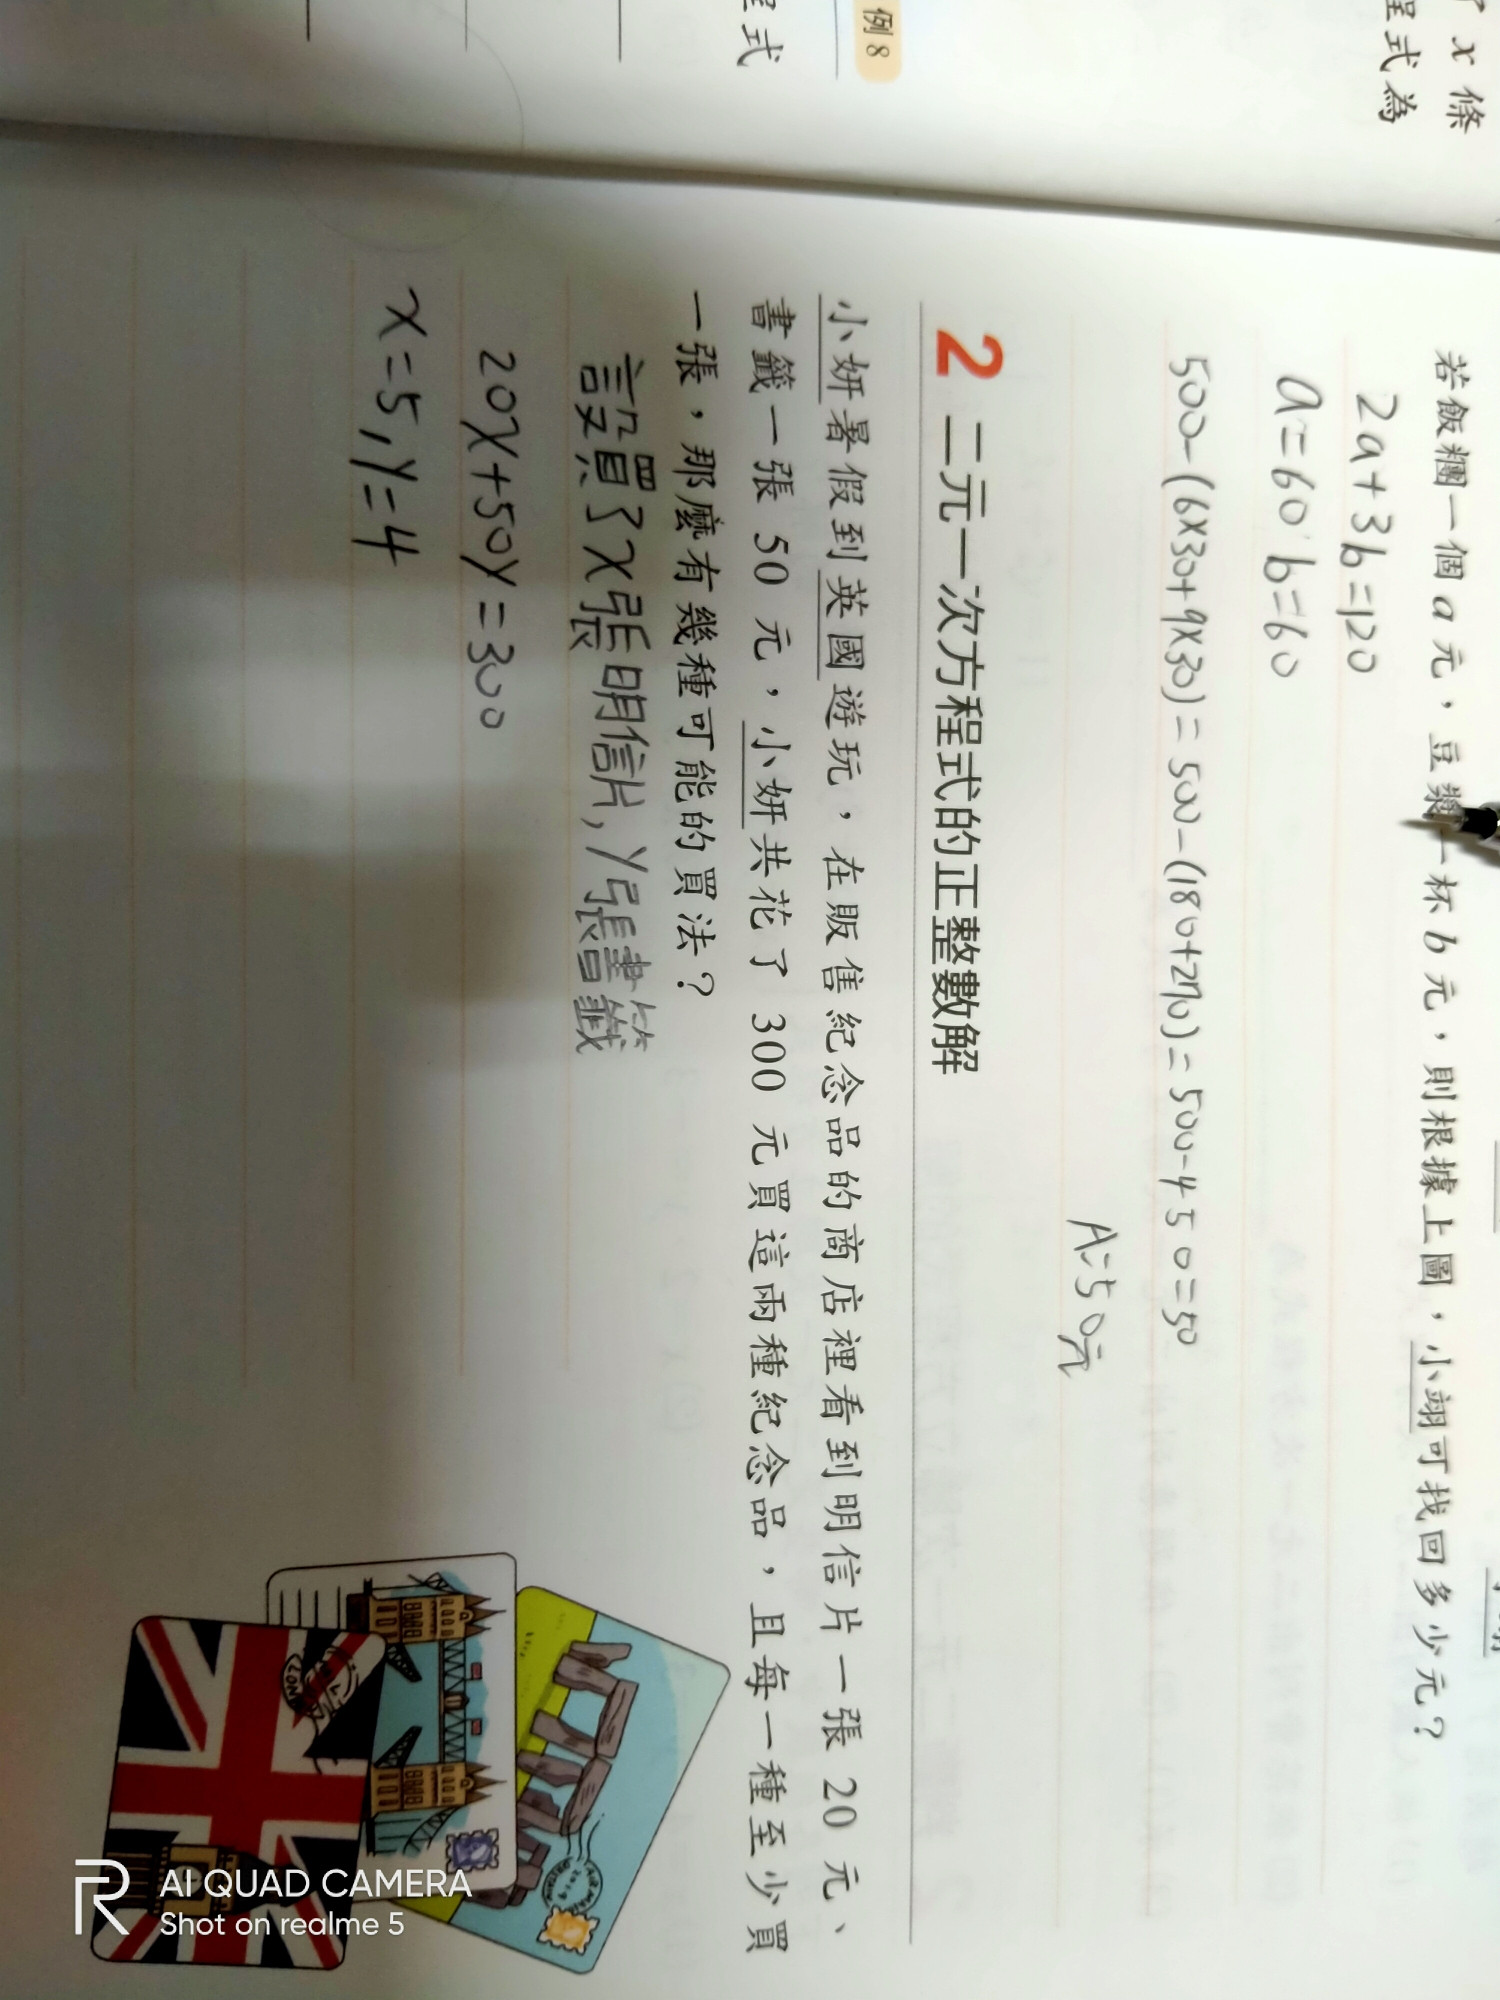 x 條
程式為
例 8
式
若飯糰一個 a 元，豆漿一杯 b 元，則根據上圖，小翊可找回多少元？
2a+3b=120
a=60 b=60
500-(6×30+9×30)=500-(180+270)=500-450=50
A=50元
2 二元一次方程式的正整數解
小妍暑假到英國遊玩，在販售紀念品的商店裡看到明信片一張 20 元、
書籤一張 50 元，小妍共花了 300 元買這兩種紀念品，且每一種至少買
一張，那麼有幾種可能的買法？
設買了x張明信片，y張書籤
20x+50y=300
x=5，y=4
AI QUAD CAMERA
Shot on realme 5